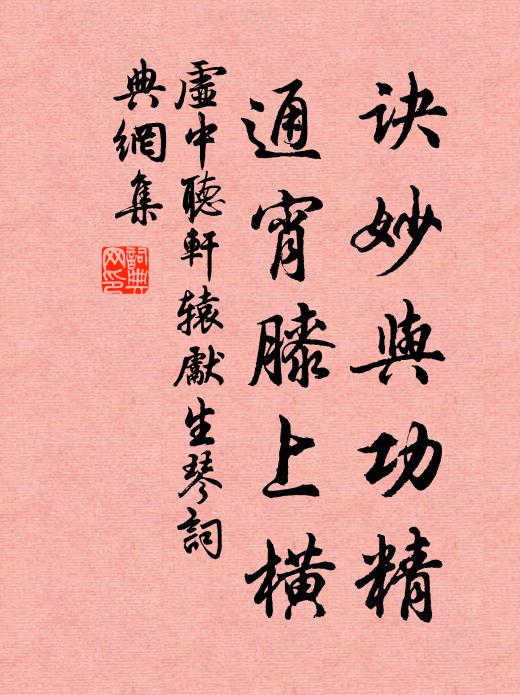 诀妙与功精
通宵膝上橫
虛中聽軒辕獻生琴詞
典網集
詞典
网印